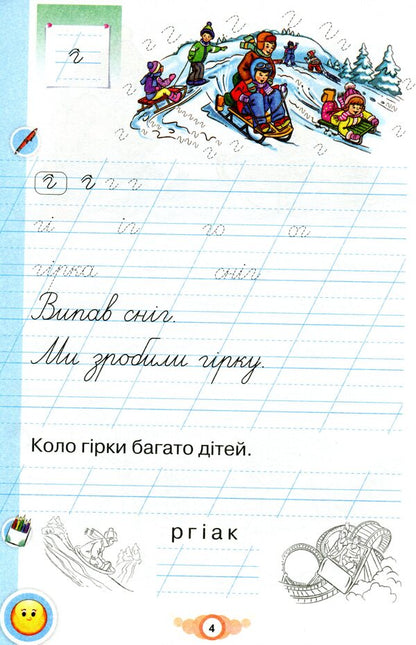 г
г г г г
гі іг го ог
гірка сніг
Випав сніг.
Ми зробили гірку.
Коло гірки багато дітей.
р г і а к
4